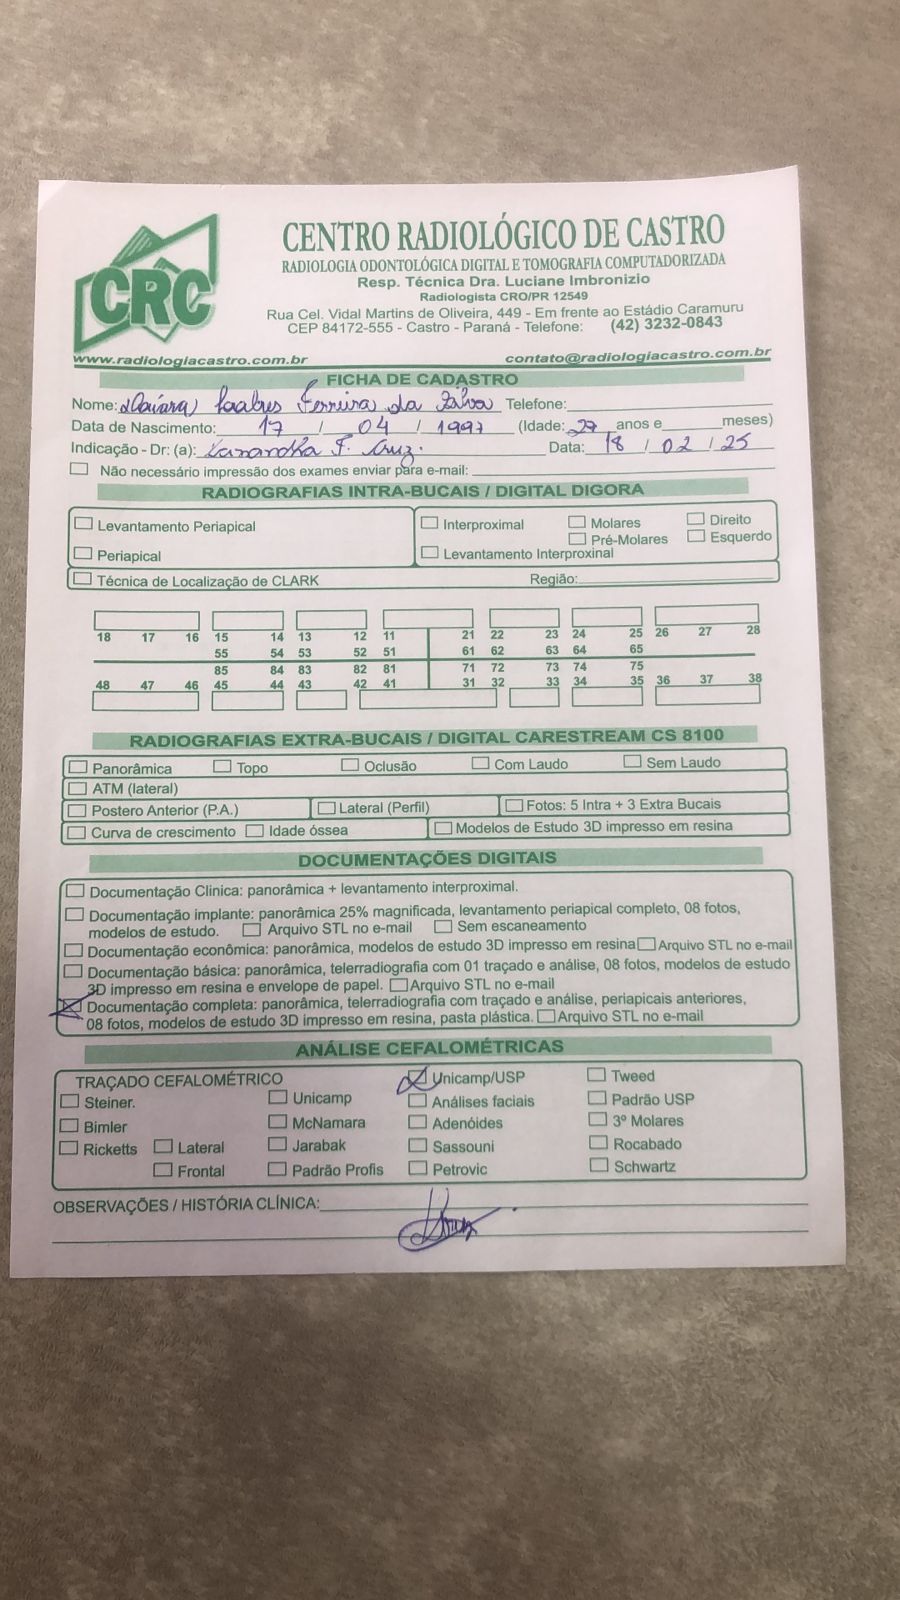 CRC
CENTRO RADIOLÓGICO DE CASTRO
RADIOLOGIA ODONTOLÓGICA DIGITAL E TOMOGRAFIA COMPUTADORIZADA
Resp. Técnica Dra. Luciane Imbronizio
Radiologista CRO/PR 12549
Rua Cel. Vidal Martins de Oliveira, 449 - Em frente ao Estádio Caramuru
CEP 84172-555 - Castro - Paraná - Telefone: (42) 3232-0843
www.radiologiacastro.com.br contato@radiologiacastro.com.br
FICHA DE CADASTRO
Nome: Ferreira da Silva Telefone:
Data de Nascimento: 17 / 04 / 1997 (Idade: 27 anos e meses)
Indicação - Dr: (a): F. Cruz. Data: 18 / 02 / 25
Não necessário impressão dos exames enviar para e-mail:
RADIOGRAFIAS INTRA-BUCAIS / DIGITAL DIGORA
Levantamento Periapical Interproximal Molares Direito
Pré-Molares Esquerdo
Periapical Levantamento Interproxinal
Técnica de Localização de CLARK Região:
18 17 16 15 14 13 12 11 21 22 23 24 25 26 27 28
55 54 53 52 51 61 62 63 64 65
85 84 83 82 81 71 72 73 74 75
48 47 46 45 44 43 42 41 31 32 33 34 35 36 37 38
RADIOGRAFIAS EXTRA-BUCAIS / DIGITAL CARESTREAM CS 8100
Panorâmica Topo Oclusão Com Laudo Sem Laudo
ATM (lateral)
Postero Anterior (P.A.) Lateral (Perfil) Fotos: 5 Intra + 3 Extra Bucais
Curva de crescimento Idade óssea Modelos de Estudo 3D impresso em resina
DOCUMENTAÇÕES DIGITAIS
Documentação Clinica: panorâmica + levantamento interproximal.
Documentação implante: panorâmica 25% magnificada, levantamento periapical completo, 08 fotos,
modelos de estudo. Arquivo STL no e-mail Sem escaneamento
Documentação econômica: panorâmica, modelos de estudo 3D impresso em resina Arquivo STL no e-mail
Documentação básica: panorâmica, telerradiografia com 01 traçado e análise, 08 fotos, modelos de estudo
3D impresso em resina e envelope de papel. Arquivo STL no e-mail
Documentação completa: panorâmica, telerradiografia com traçado e análise, periapicais anteriores,
08 fotos, modelos de estudo 3D impresso em resina, pasta plástica. Arquivo STL no e-mail
ANÁLISE CEFALOMÉTRICAS
TRAÇADO CEFALOMÉTRICO Unicamp/USP Tweed
Steiner. Unicamp Análises faciais Padrão USP
Bimler McNamara Adenóides 3º Molares
Ricketts Lateral Jarabak Sassouni Rocabado
Frontal Padrão Profis Petrovic Schwartz
OBSERVAÇÕES / HISTÓRIA CLÍNICA: